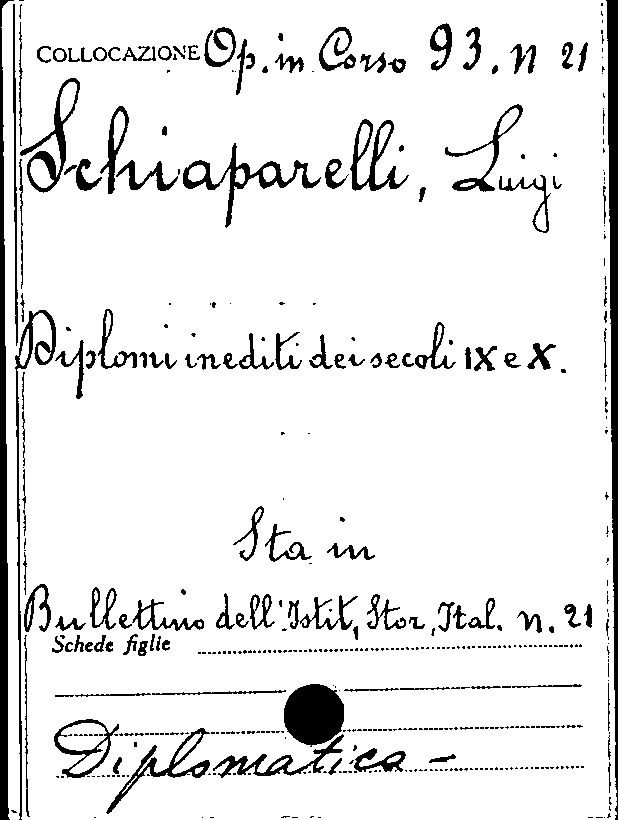 COLLOCAZIONE Op. in Corso 93. n 21
Schiaparelli, Luigi
Diplomi inediti dei secoli IX e X.
Sta in
Bullettino dell'Istit, Stor, Ital. n. 21
Schede figlie
Diplomatica -